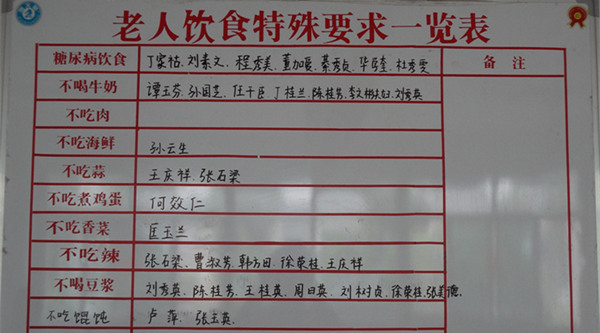 老人饮食特殊要求一览表
糖尿病饮食 丁宗祜、刘素文、程秀美、董加暖、綦秀贞、毕展奎、杜秀雯 备注
不喝牛奶 谭玉芬、孙国芝、任千臣 丁桂兰、陈桂芳、刘秀英
不吃肉
不吃海鲜 孙云生
不吃蒜 王庆祥、张石梁
不吃煮鸡蛋 何效仁
不吃香菜 匡玉兰
不吃辣 张石梁、曹淑芳、韩方田、徐荣桂、王庆祥
不喝豆浆 刘秀英、陈桂芳、王桂英、周日英、刘树贞、徐荣桂、张美德、
不吃馄饨 卢萍、张玉英、